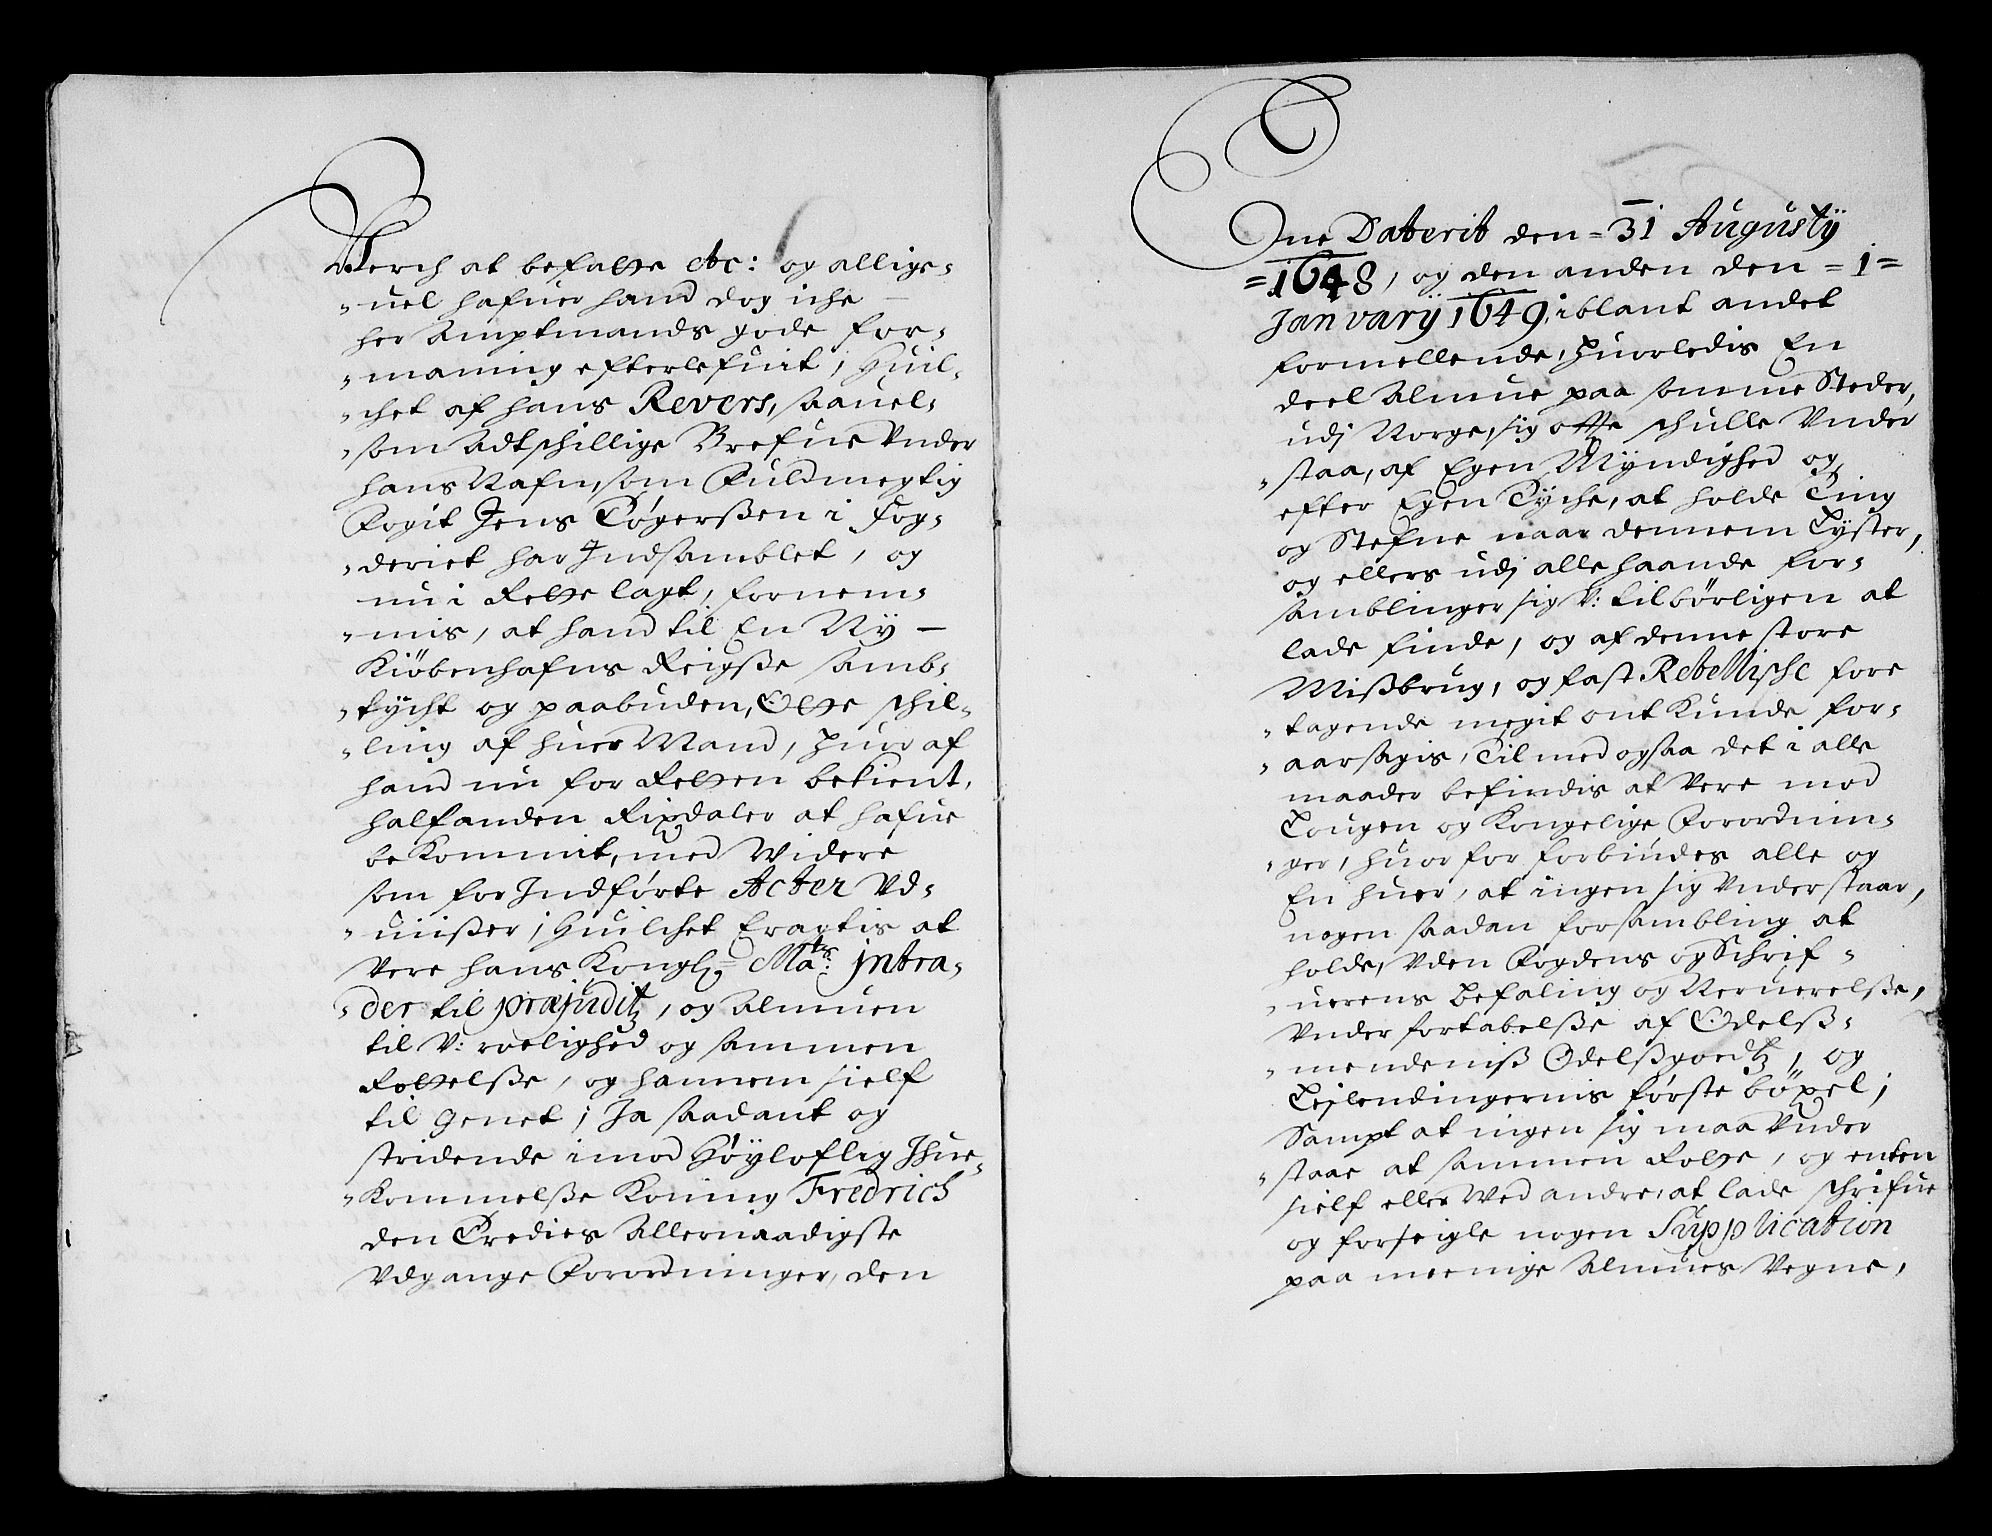 Verch at befatte etc: og allige-
-uel hafuer hand dog iche
her Amptmands gode for-
-maning efterlefuit, Huil-
-chet af hans Revers, saauel-
-som Adtschillige Brefue Vnder
hans Nafn, som Fuldmegtig
Fogit Jens Tøgerßen i Fog-
-deriet har Indsamblet, og
nu i Rette lagt, fornem-
-mis, at hand til En Ny
Kiöbenhafns Reigße samb-
-tycht og paabuden, Otte schil-
-ling af huer Mand, huor af
hand nu for Retten bekient,
halfanden Rixdaler at hafue
bekommit, med Widere
som for Indførte Acter Vd-
-uiißer, Huilchet Eragtis at
Vere hans Kongl: Ma:ts intra-
-der til præjuditz, og Almuen
til V: roelighed og sammen
Rottelße, og hannem sielf
til Genet; Ja saadant og
stridende imod Høylofleg Ihue-
-Kommelße Koning Fredrich
den Tredies Allernaadigste
Vdgangne Forordninger, den
Ene Daterit den = 31 Augustÿ
= 1648, og den anden den = 1 =
Januarÿ 1649, iblant andet
formellende, huorledis En
deel Almue paa somme Steder,
udj Norge, sig offte schulle Vnder
-staa, af Egen Myndighed og
efter Egen Tyche, at holde Ting
og Stefne naar dennem Lyster,
og ellers udj allehaande for-
samblinger sig V: tilbørligen at
lade finde, og af denne store
Mißbrug, og fast Rebellische fore
-tagende megit ont Kunde for-
-aarsagis, Til med ogsaa det i alle
maader befindis at Vere mod
Lougen og Kongelige Forordnin-
-ger, huor for forbindes alle og
En huer, at ingen sig Vnderstaar,
nogen saadan forsambling at
holde, Vden Fogdens og Schrif-
-uerens Befaling og Neruerelße,
Vnder fortabelße af Odelß-
-mendeniß Odelßgoedtz, og
Lejlendingernis første böxel;
Sampt at ingen sig maa Vnder
-staae at sammen Rotte, og enten
sielf eller Wed andre, at lade schrifue
og forseigle nogen Supplication
paa meenige Almues Vegne,